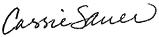 Cassie Sauer